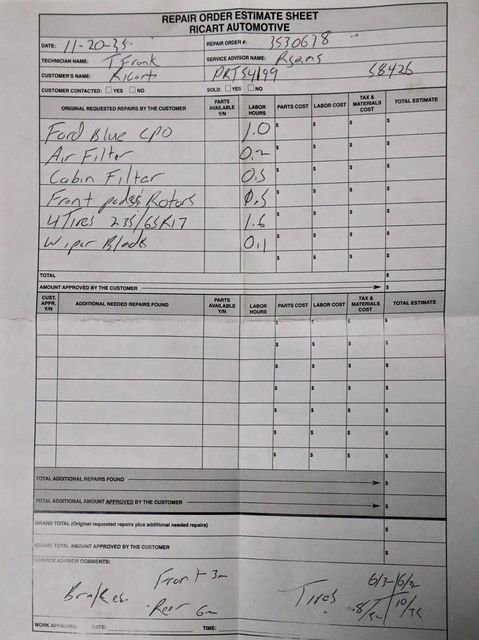 REPAIR ORDER ESTIMATE SHEET
RICART AUTOMOTIVE
DATE: 11-20-25 REPAIR ORDER #: 3530678
TECHNICIAN NAME: T Frank SERVICE ADVISOR NAME: Rsams
CUSTOMER'S NAME: Ricart PRT54199 58426
CUSTOMER CONTACTED: YES NO SOLD: YES NO
ORIGINAL REQUESTED REPAIRS BY THE CUSTOMER PARTS AVAILABLE Y/N LABOR HOURS PARTS COST LABOR COST TAX & MATERIALS COST TOTAL ESTIMATE
Ford Blue CPO 1.0 $ $ $ $
Air Filter 0.2 $ $ $ $
Cabin Filter 0.5 $ $ $ $
Front pads & Rotors 0.5 $ $ $ $
4 Tires 235/65R17 1.6 $ $ $ $
Wiper Blads 0.1 $ $ $ $
$ $ $ $
TOTAL $
AMOUNT APPROVED BY THE CUSTOMER $
CUST. APPR. Y/N ADDITIONAL NEEDED REPAIRS FOUND PARTS AVAILABLE Y/N LABOR HOURS PARTS COST LABOR COST TAX & MATERIALS COST TOTAL ESTIMATE
$ $ $ $
$ $ $ $
$ $ $ $
$ $ $ $
$ $ $ $
$ $ $ $
$ $ $ $
TOTAL ADDITIONAL REPAIRS FOUND $
TOTAL ADDITIONAL AMOUNT APPROVED BY THE CUSTOMER $
GRAND TOTAL (Original requested repairs plus additional needed repairs) $
GRAND TOTAL AMOUNT APPROVED BY THE CUSTOMER $
SERVICE ADVISOR COMMENTS:
Brakes Front 3m Tires 6/32 6/32
Rear 6m 8/32 10/32
WORK APPROVED: DATE: TIME: